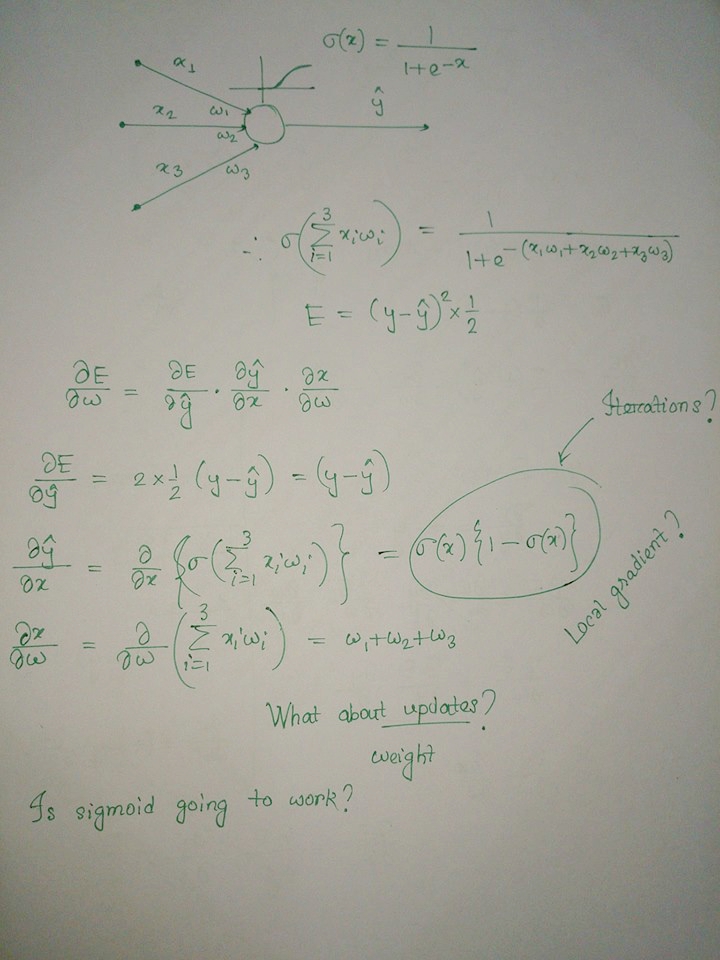 σ(x) = 1/(1+e^-x)
x1
x2
x3
ω1
ω2
ω3
ŷ
∴ σ(∑_{i=1}^{3} xiωi) = 1/(1+e^-(x1ω1+x2ω2+x3ω3))
E = (y-ŷ)² × 1/2
∂E/∂ω = ∂E/∂ŷ · ∂ŷ/∂x · ∂x/∂ω
Iterations?
∂E/∂ŷ = 2 × 1/2 (y-ŷ) = (y-ŷ)
∂ŷ/∂x = ∂/∂x {σ(∑_{i=1}^{3} xiωi)} = σ(x){1-σ(x)}
Local gradient?
∂x/∂ω = ∂/∂ω (∑_{i=1}^{3} xiωi) = ω1+ω2+ω3
What about updates?
weight
Is sigmoid going to work?